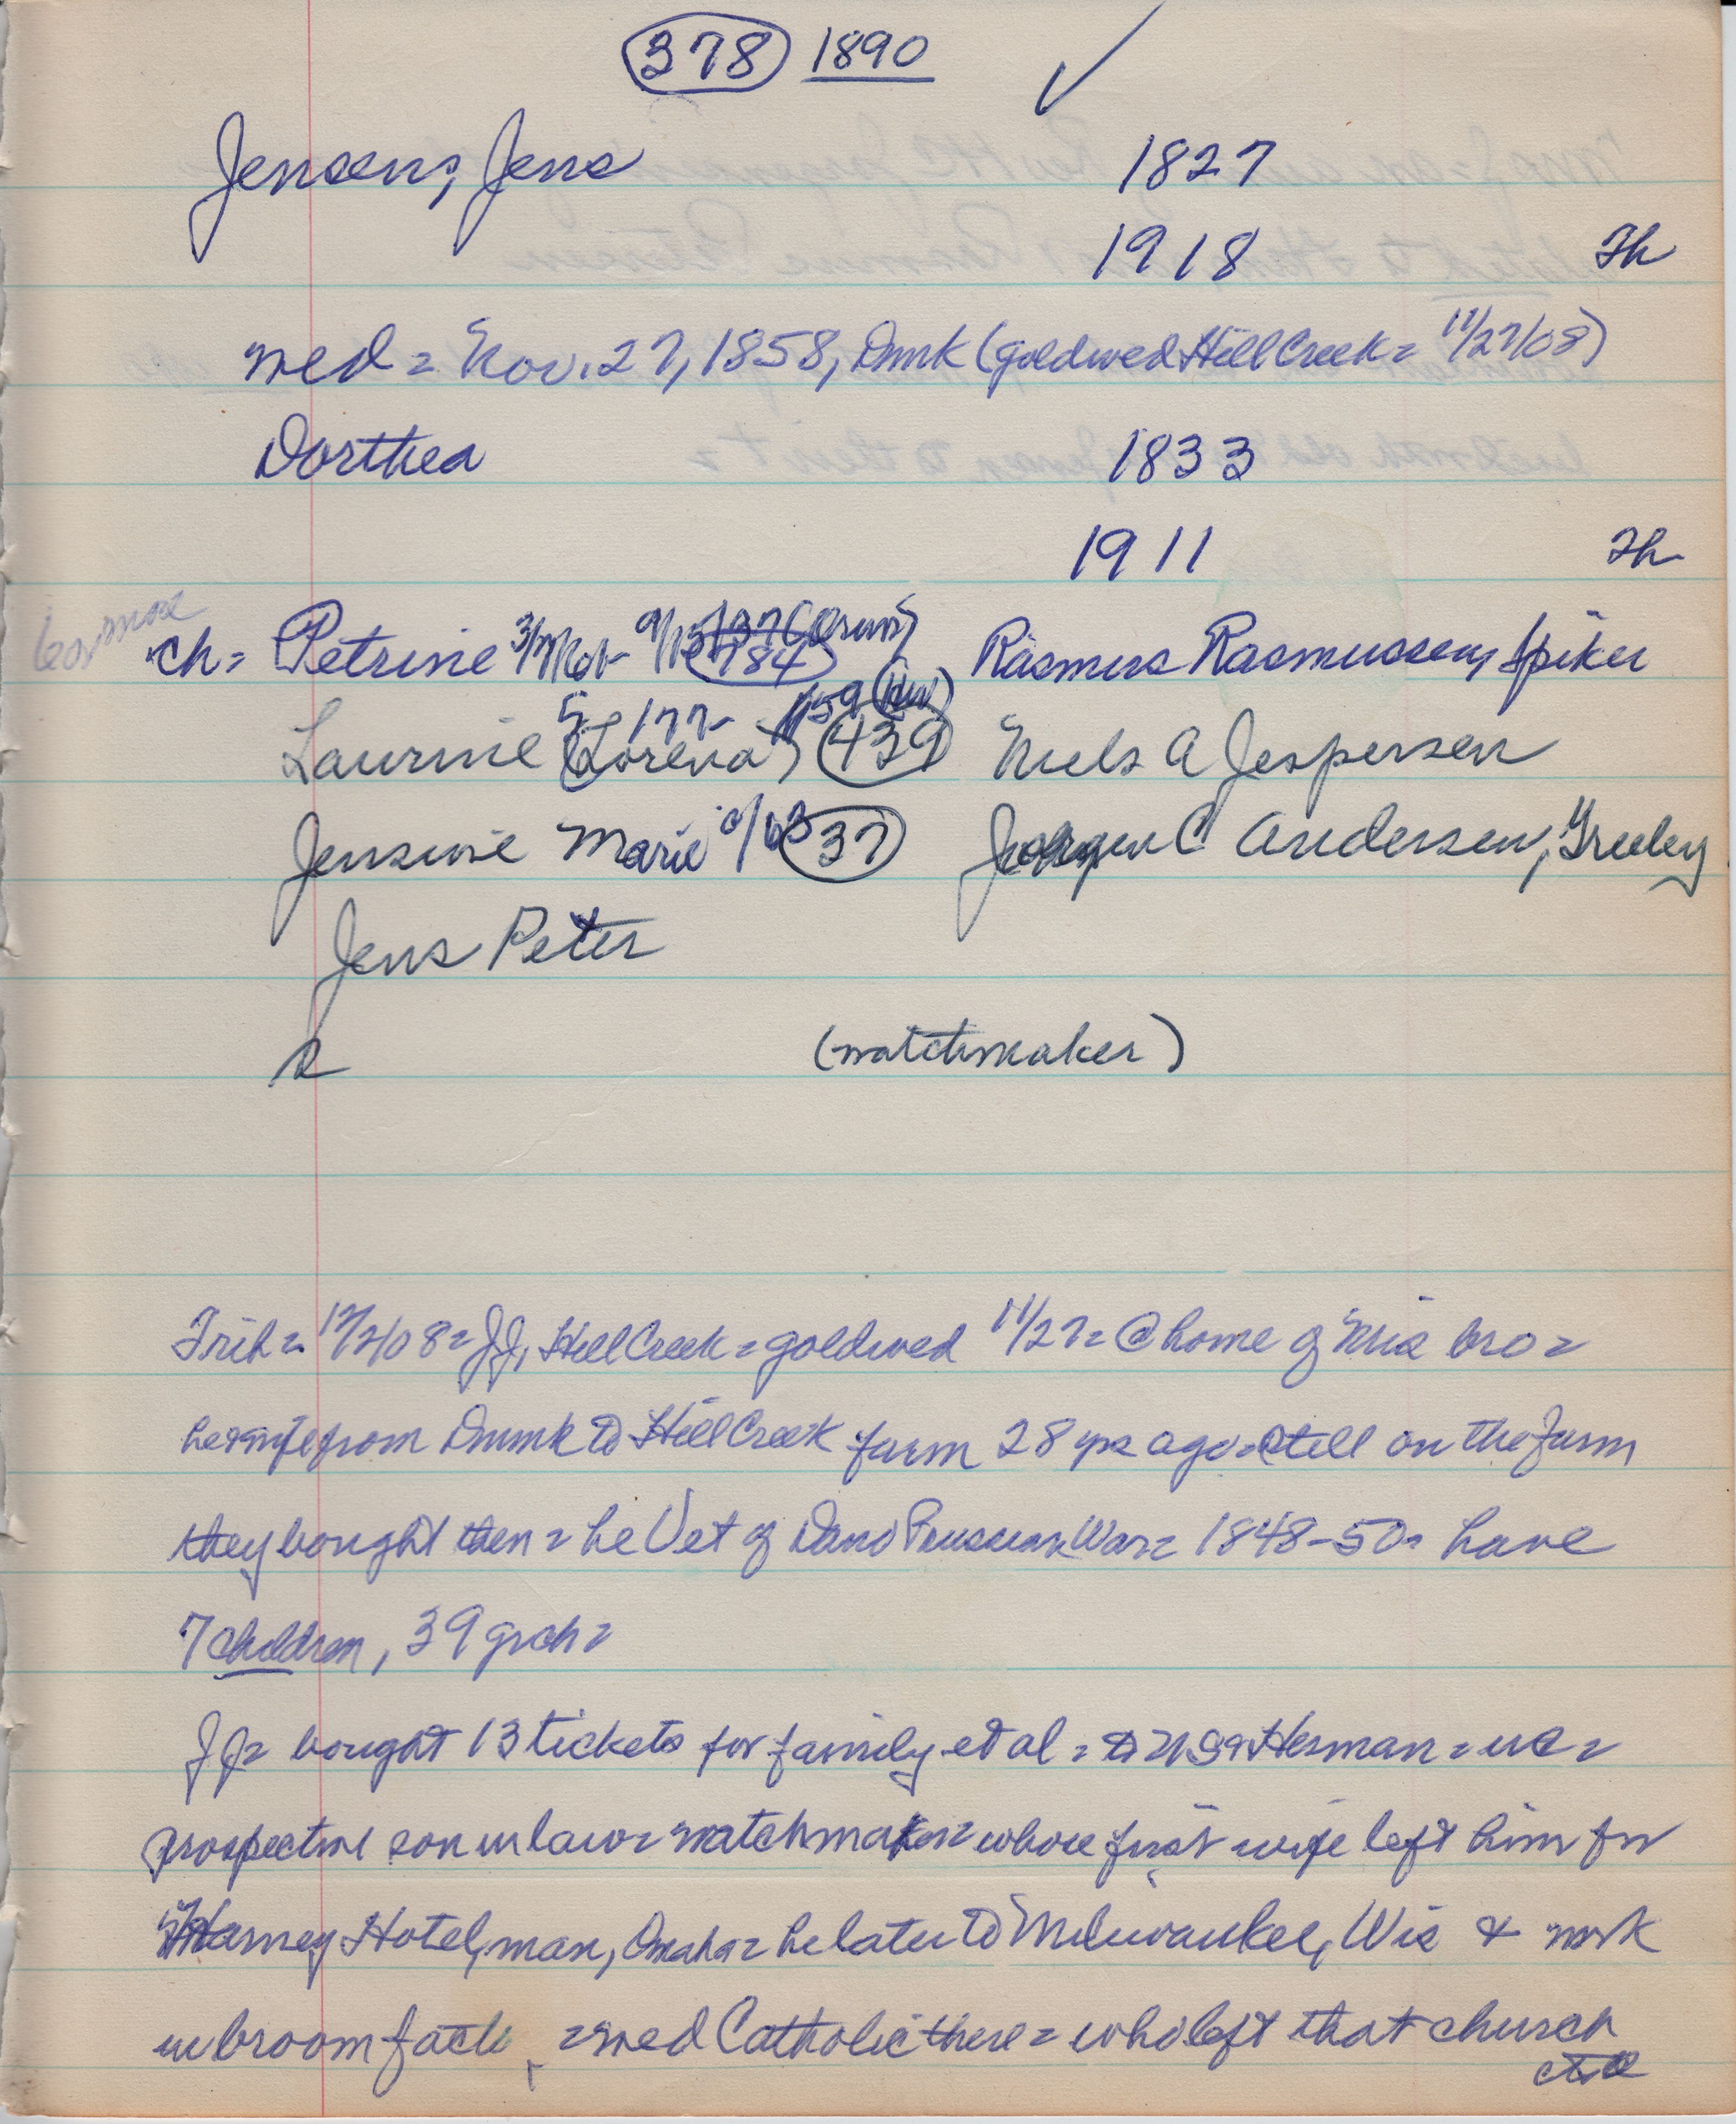 378 1890 ✓
Jensen, Jens 1827
1918 Th
wed = Nov. 27, 1858, Dmk (goldwed Hill Creek = 11/27/08)
Dorthea 1833
1911 Th
ch = Petrine 184 Rasmus Rasmussen, Spiker
Laurine (Lorena) 439 Niels A Jespersen
Jensine Marie 37 Jorgen C Andersen, Greeley
Jens Peter
(matchmaker)
Frih = 12/2/08 = JJ, Hill Creek = goldwed 11/27 = @ home of bro =
he & wife from Dnmk to Hill Creek farm 28 yrs ago = still on the farm
they bought then = he Vet of Dano Prussian War = 1848-50 = have
7 children, 39 grch =
JJ = bought 13 tickets for family et al = to USA Herman =
prospective son in law = matchmaker = whose first wife left him for
Harney Hotel, man, Omaha = he later to Milwaukee, Wis & work
in broom fact = wed Catholic there = who left that church